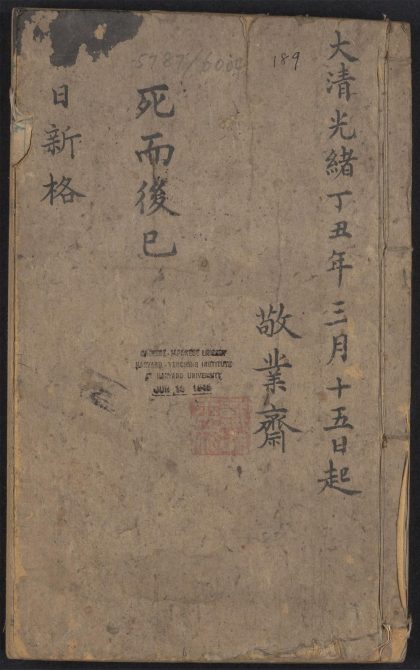 大清光緒丁丑年三月十五日起
敬業齋
死而後已
日新格
189
CHINESE-JAPANESE LIBRARY
HARVARD-YENCHING INSTITUTE
AT HARVARD UNIVERSITY